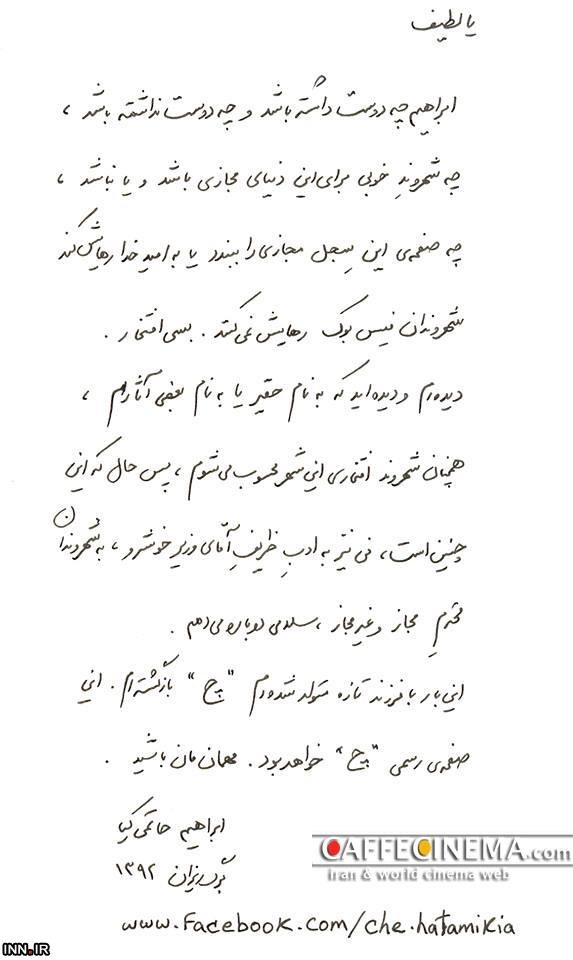 یا لطیف
ابراهیم چه دوست داشته باشد و چه دوست نداشته باشد ،
چه شهروندِ خوبی برای این دنیای مجازی باشد و یا نباشد ،
چه صفحه‌ی این سِجل مجازی را ببندد یا به امید خدا رهایش کند
شهروندان فیس بوک رهایش نمی‌کنند . بسی افتخار .
دیده‌ام و دیده‌اید که به نام حقیر یا به نام بعضی آثارم ،
همچنان شهروند افتخاری این شهر محسوب می‌شوم ، پس حال که این
چنین است ، من نیز به ادبِ ظریفِ آقای وزیر خوشرو ، به شهروندان
محترمِ مجاز و غیرمجاز ، سلامی دوباره می‌دهم .
این بار با فرزند تازه متولد شده‌ام "چ" بازگشته‌ام . این
صفحه‌ی رسمی "چ" خواهد بود . مهمان‌مان باشید .
ابراهیم حاتمی کیا
۱۳۹۲
www.facebook.com/che.hatamikia
CAFFECINEMA.com
iran & world cinema web
INN.IR